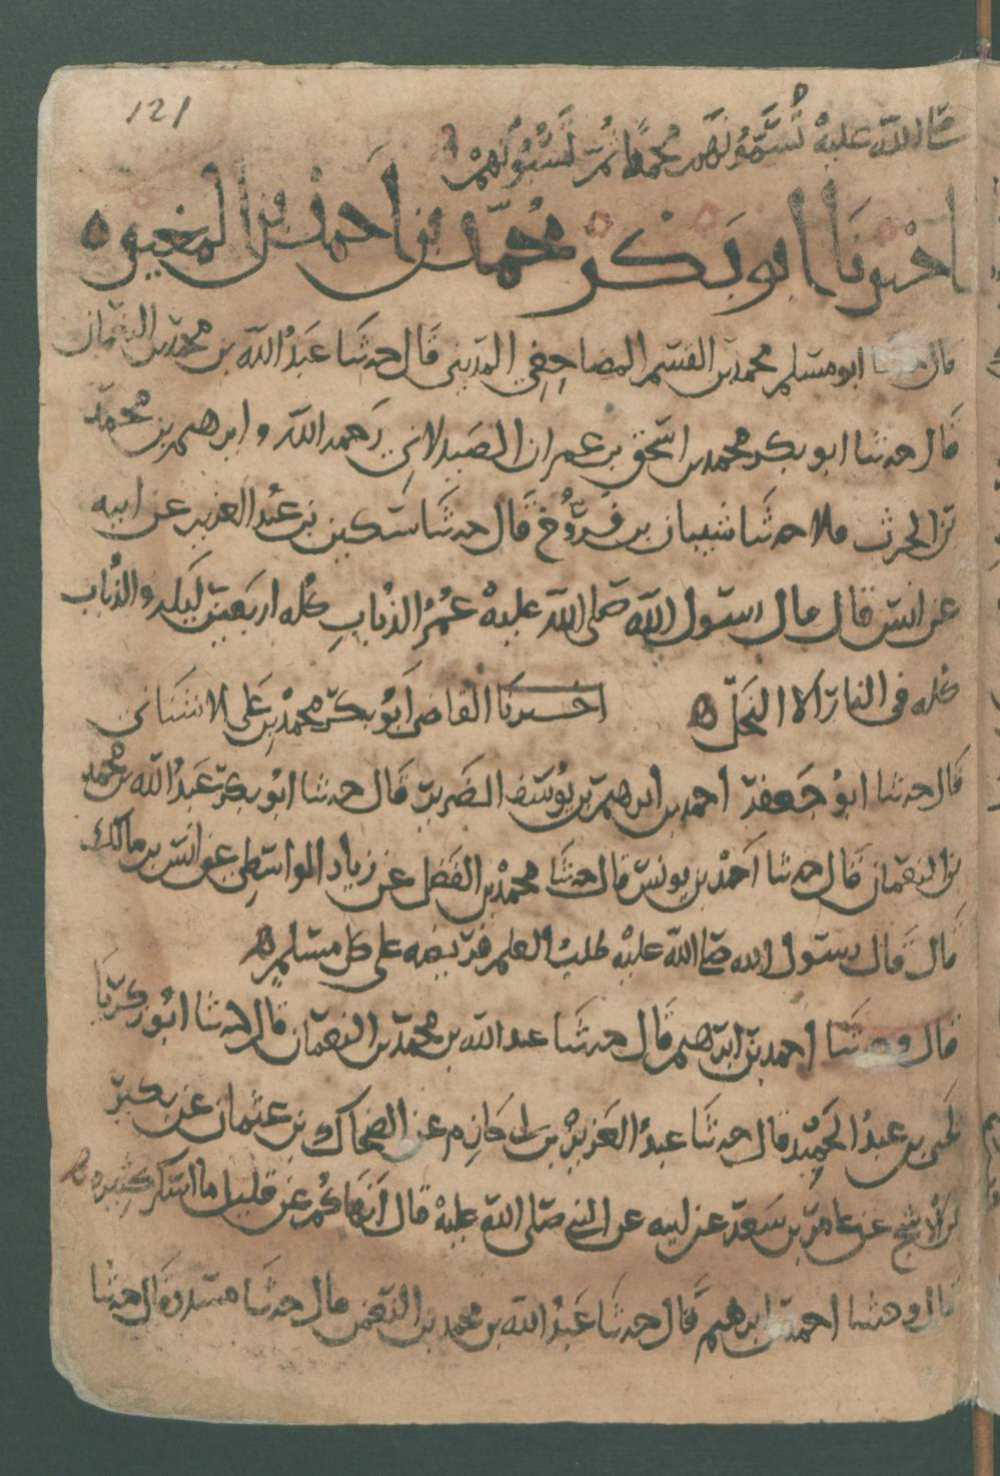 121
قال الله عليه تسمونهم محمدا ثم تسبونهم
اخبرنا ابو بكر محمد بن احمد بن المغيره
قال حدثنا ابو مسلم محمد بن القسم المصاحفي المديني قال حدثنا عبد الله بن محمد بن النعمان
قال حدثنا ابو بكر محمد بن اسحق بن عمران الصيدلاني رحمه الله وابرهيم بن محمد
بن الحرث قالا حدثنا شيبان بن فروخ قال حدثنا سكين بن عبد العزيز عن ابيه
عن انس قال قال رسول الله صلى الله عليه عمر الذباب كله اربعين ليله والذباب
كله في النار الا النحل اخبرنا القاضي ابو بكر محمد بن علي لاشناني
قال حدثنا ابو جعفر احمد بن ابرهيم بن يوسف الضرير قال حدثنا ابو بكر عبد الله بن محمد
بن النعمان قال حدثنا احمد بن يونس قال حدثنا محمد بن الفضل عن زياد الواسطي عن انس بن مالك
قال قال رسول الله صلى الله عليه طلب العلم فريضه على كل مسلم
قال وحدثنا احمد بن ابرهيم قال حدثنا عبد الله بن محمد بن النعمان قال حدثنا ابو زكريا
يحيى بن عبد الحميد قال حدثنا عبد العزيز بن ابي حازم عن الضحاك بن عثمان عن بكير
بن الاشج عن عامر بن سعد عن ابيه عن النبي صلى الله عليه قال انهاكم عن قليل ما اسكر كثيره
قال وحدثنا احمد بن ابرهيم قال حدثنا عبد الله بن محمد بن النعمن قال حدثنا مسدد قال حدثنا